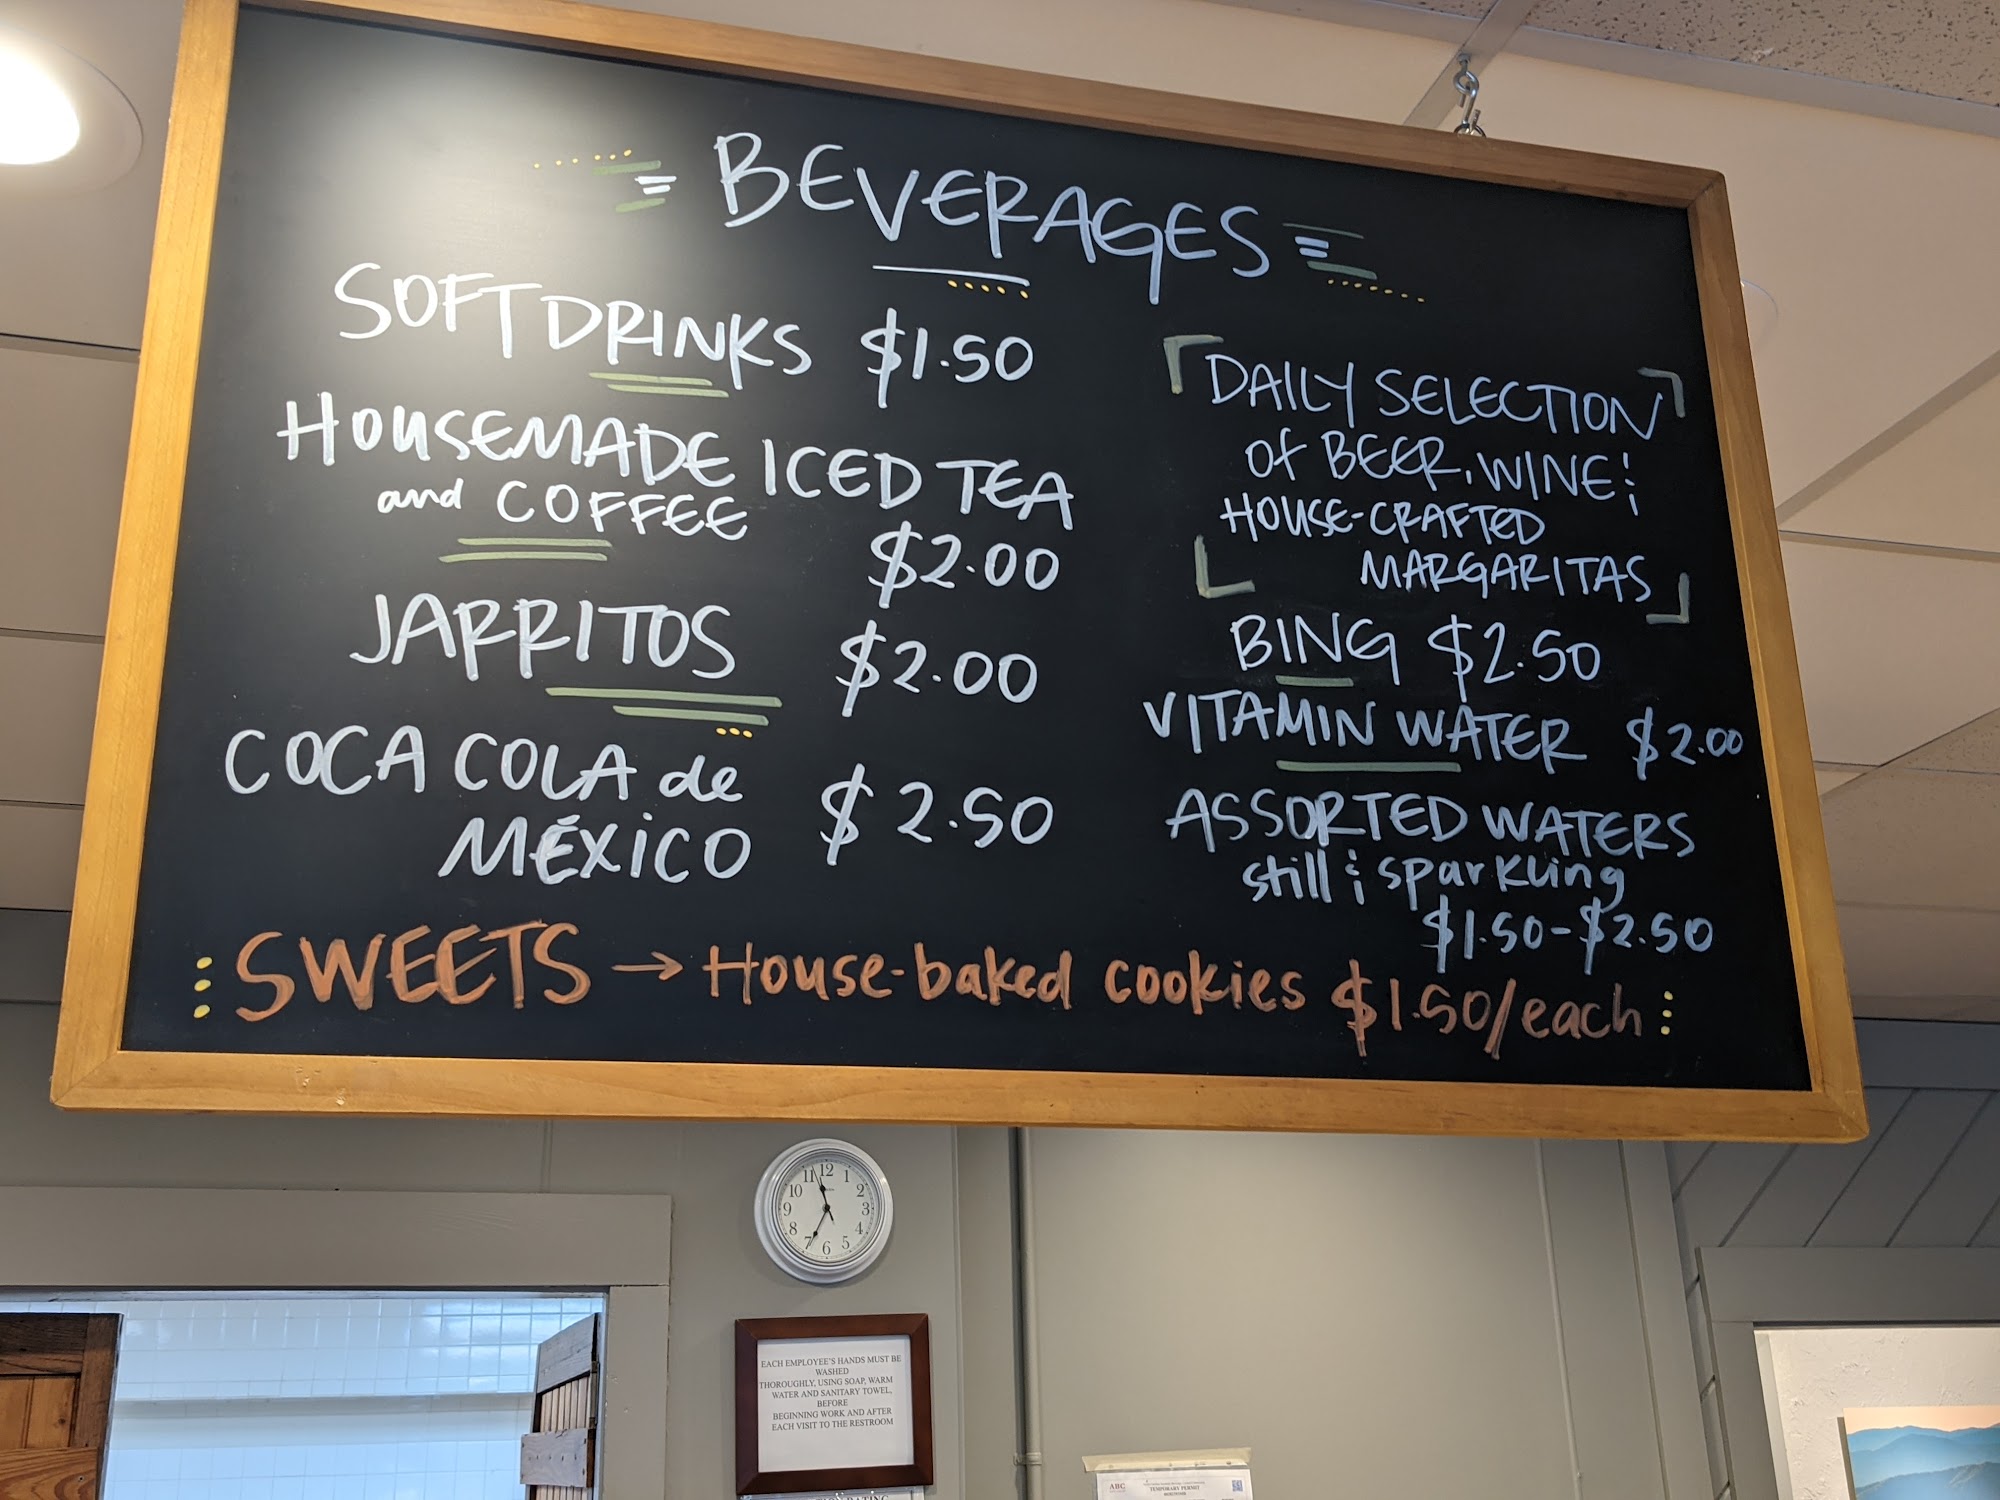 BEVERAGES
SOFT DRINKS $1.50
HOUSEMADE ICED TEA
and COFFEE
$2.00
JARRITOS $2.00
COCA COLA de
MÉXICO $2.50
DAILY SELECTION
of BEER, WINE &
HOUSE-CRAFTED
MARGARITAS
BING $2.50
VITAMIN WATER $2.00
ASSORTED WATERS
still & sparkling
$1.50-$2.50
SWEETS → House-baked cookies $1.50/each
12
1
2
3
4
5
6
7
8
9
10
11
EACH EMPLOYEE'S HANDS MUST BE
WASHED
THOROUGHLY, USING SOAP, WARM
WATER AND SANITARY TOWEL,
BEFORE
BEGINNING WORK AND AFTER
EACH VISIT TO THE RESTROOM
ABC
TEMPORARY PERMIT
RATING